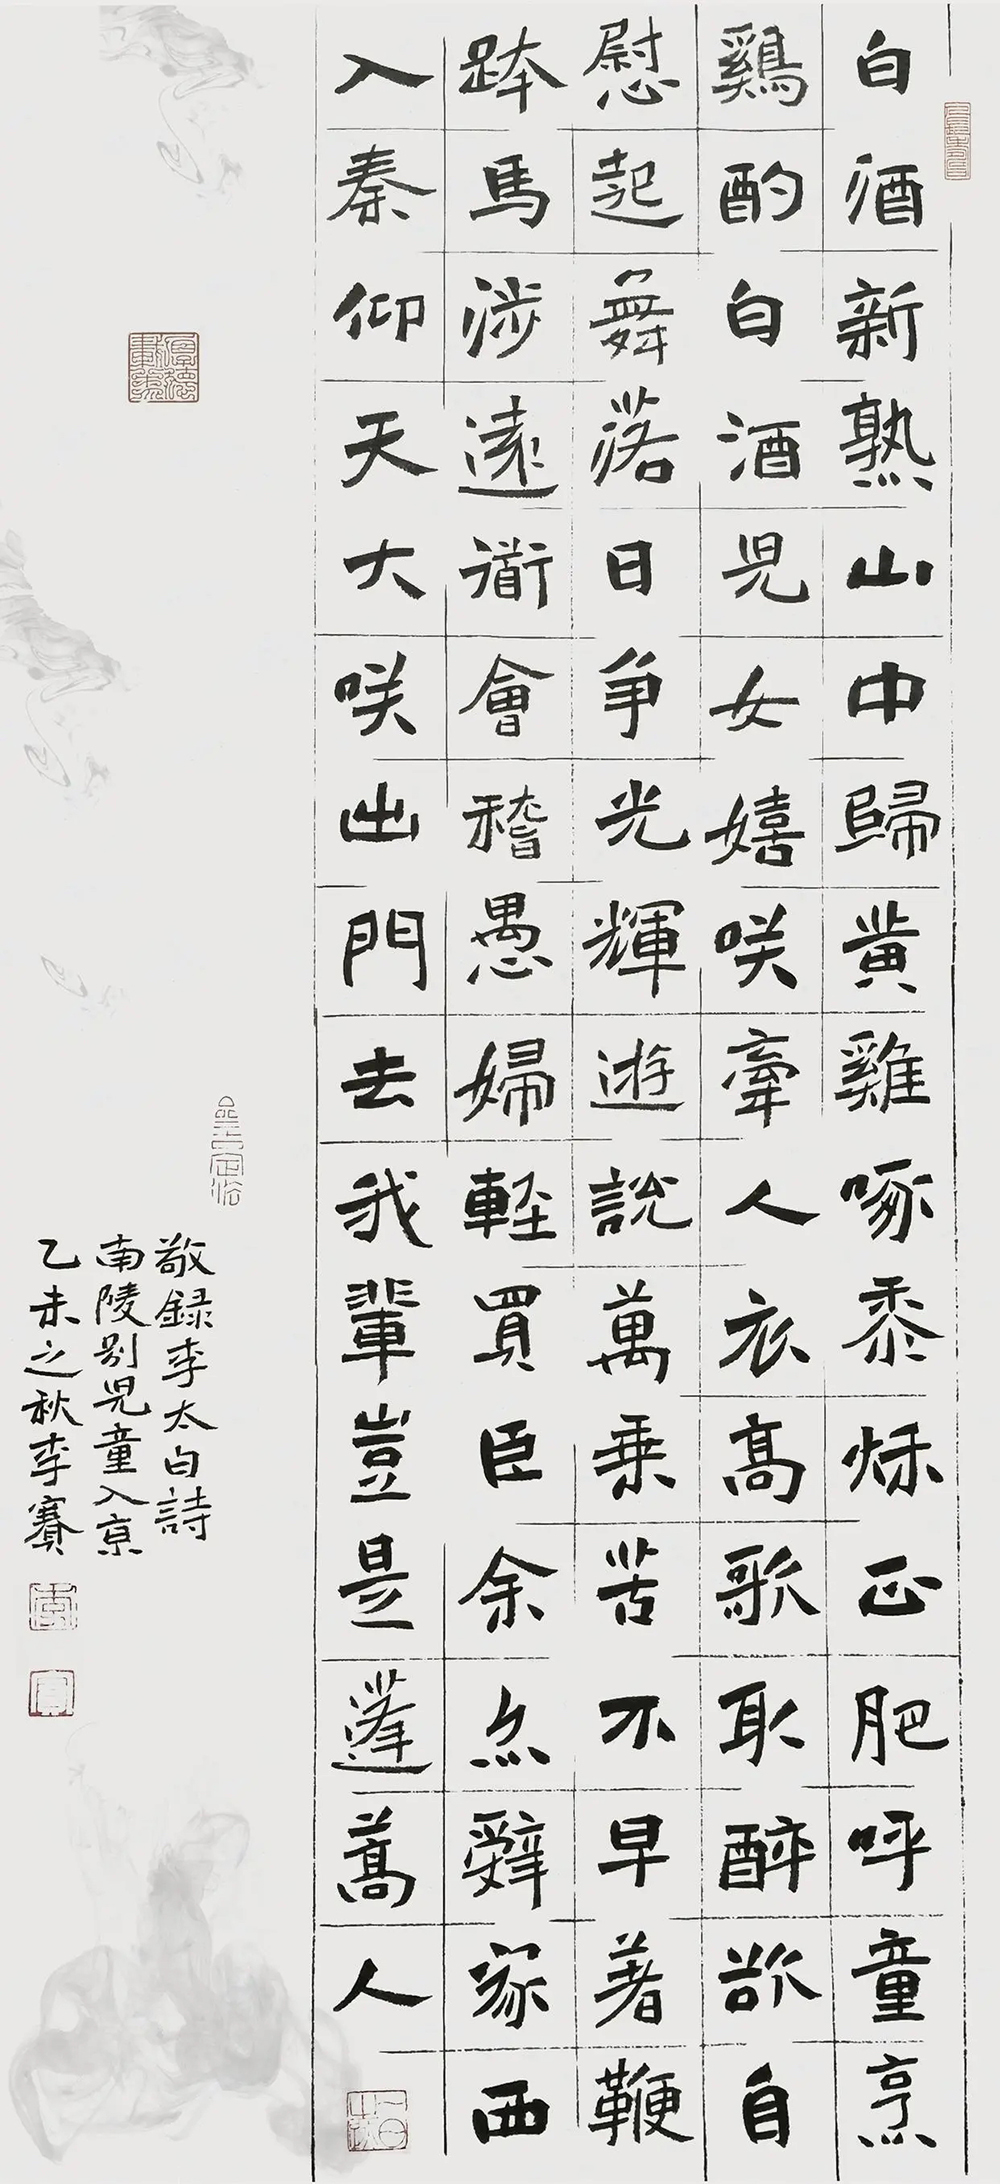 白酒新熟山中歸黄雞啄黍秋正肥呼童烹
鷄酌白酒兒女嬉咲牽人衣高歌取醉欲自
慰起舞落日争光輝遊說萬乗苦不早著鞭
跨馬涉遠衜會稽愚婦輕買臣余亦辤家西
入秦仰天大咲出門去我輩豈是蓬蒿人
敬録李太白詩
南陵别兒童入京
乙未之秋李賽